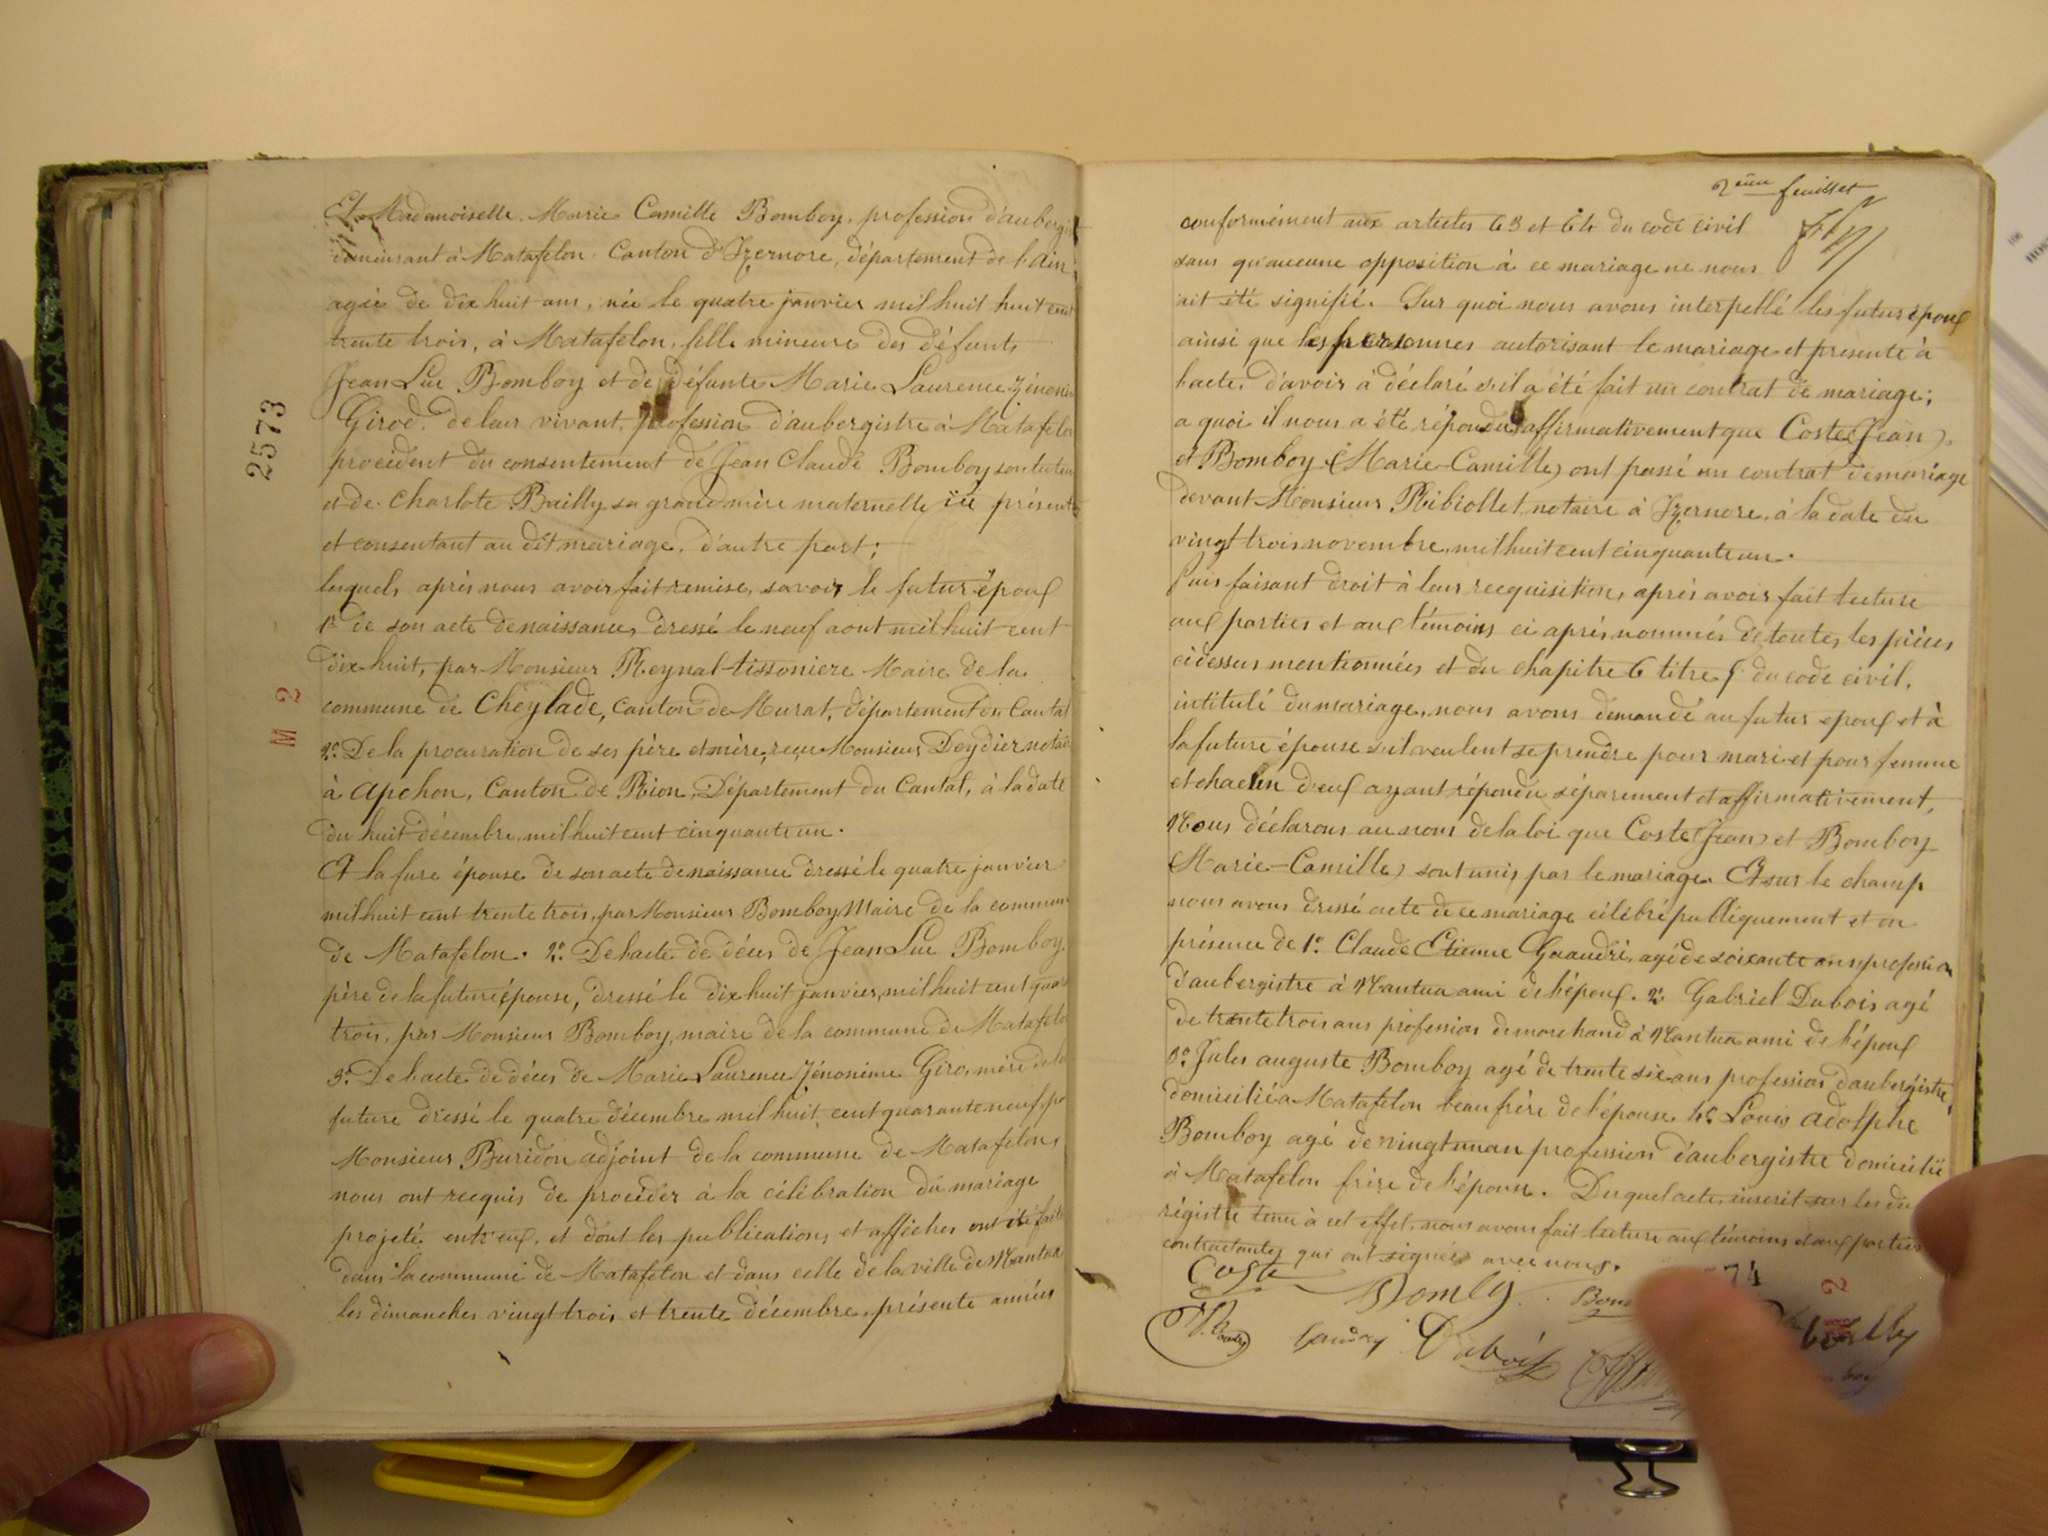 Et Mademoiselle Marie Camille Bomboy, profession d'aubergi
demeurant à Matafelon, Canton d'Izernore, département de l'Ain
agée de dix huit ans, née le quatre janvier mil huit huit cent
trente trois, à Matafelon, fille mineure des défunts
Jean Luc Bomboy et de défunte Marie Laurence
Girod, de leur vivant, profession d'aubergistre à Matafelon
procédent du consentement de Jean Claude Bomboy son tuteur
et de Charlote Bailly sa grand mère maternelle ici présents
et consentant au dit mariage, d'autre part;
lesquels après nous avoir fait remise, savoir le futur époux
1º de son acte de naissance, dressé le neuf aout mil huit cent
dix huit, par Monsieur Reynal-tissoniere Maire de la
commune de Cheylade, canton de Murat, département du Cantal
2º. De la procuration de ses père et mère, reçue Monsieur Deydier notaire
à Apchon, Canton de Rion, Département du Cantal, à la date
du huit décembre, mil huit cent cinquante un.
Et la fure épouse de son acte de naissance dressé le quatre janvier
mil huit cent trente trois, par Monsieur Bomboy Maire de la commune
de Matafelon. 2º. De l'acte de décès de Jean Luc Bomboy
père de la future épouse, dressé le dix huit janvier, mil huit cent quar
trois, par Monsieur Bomboy, maire de la commune de Matafelo
3º. De l'acte de décès de Marie Laurence Giro, mère de la
future dressé le quatre décembre mil huit cent quarante neuf, pa
Monsieur Buridon adjoint de la commune de Matafelon,
nous ont recquis de procéder à la célébration du mariage
projeté entr'eux, et dont les publications et affiches ont été faites
dans la commune de Matafelon et dans celle de la ville de Nantua
les dimanches vingt trois et trente décembre, présente années
2573
M 2
2ème feuillet
conformément aux articles 63 et 64 du code civil
sans qu'aucune opposition à ce mariage ne nous
ait été signifié. Sur quoi nous avons interpellé les futurs époux
ainsi que les personnes autorisant le mariage et présente à
l'acte, d'avoir à déclaré s'il a été fait un contrat de mariage;
a quoi il nous a été répondu affirmativement que Coste (Jean)
et Bomboy (Marie-Camille) ont passé un contrat de mariage
devant Monsieur Ribiollet, notaire à Izernore, à la date du
vingt trois novembre, mil huit cent cinquante un.
Puis faisant droit à leur recquisition, après avoir fait lecture
aux parties et aux témoins ci après nommés de toutes les pièces
ci dessus mentionnées et du chapitre 6 titre 5 du code civil,
intitulé du mariage, nous avons demandé au futur époux et à
la future épouse s'il veulent se prendre pour mari et pour femme
et chacun d'eux ayant répondu séparement et affirmativement,
Nous déclarons au nom de la loi que Coste (Jean) et Bomboy
(Marie-Camille) sont unis par le mariage. Et sur le champ
nous avons dressé acte de ce mariage célébré publiquement et en
présence de 1º. Claude Etienne agé de soixante ans profession
d'aubergistre à Nantua ami de l'époux. 2º. Gabriel Dubois agé
de trente trois ans profession de marchand à Nantua ami de l'époux
3º. Jules auguste Bomboy agé de trente six ans profession d'aubergistre,
domicilié à Matafelon beau frère de l'épouse. 4º. Louis Adolphe
Bomboy agé de vingt un an profession d'aubergistre domicilié
à Matafelon frère de l'épouse. Du quel acte, inscrit sur les du
régistre tenu à cet effet, nous avons fait lecture aux témoins et aux parties
contractantes qui ont signées avec nous.
Coste Bomboy
74
2
Dubois